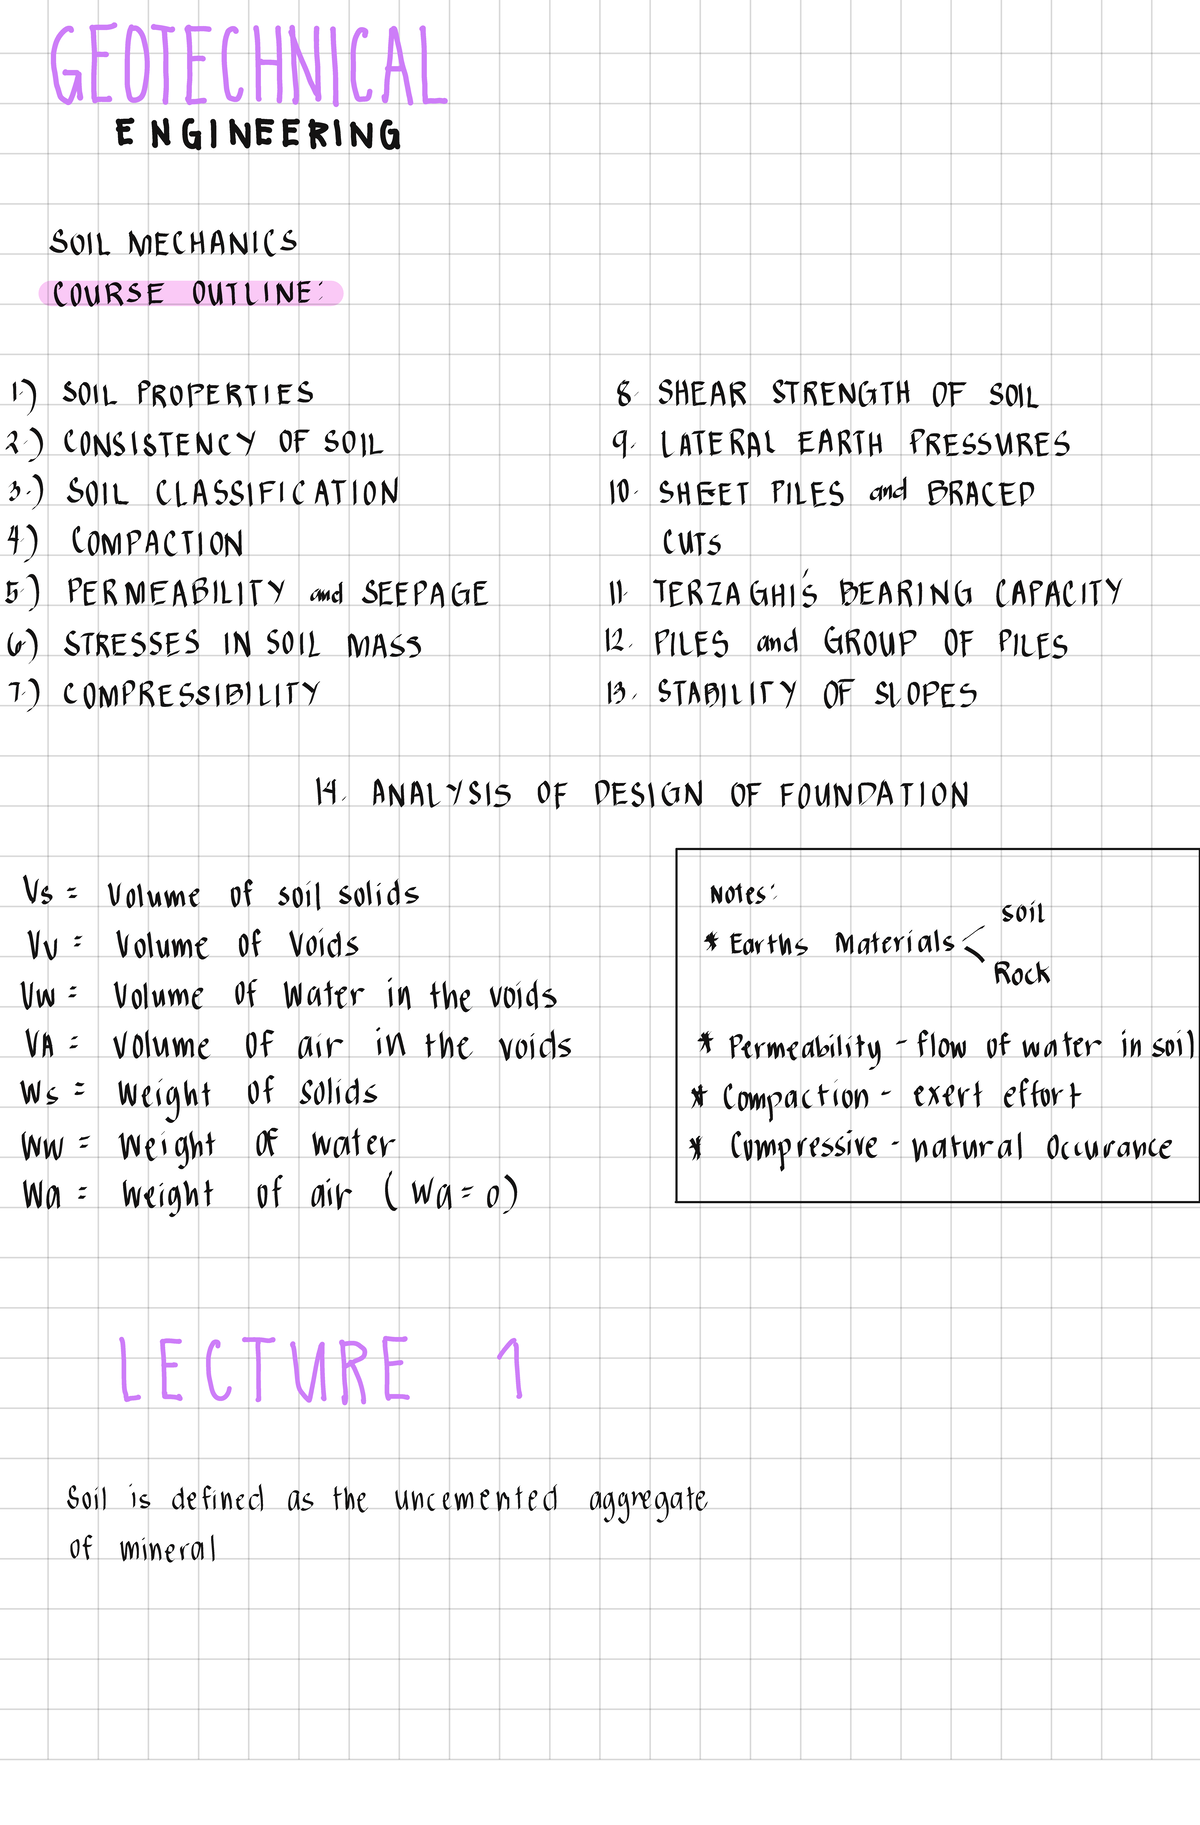 GEOTECHNICAL
ENGINEERING
SOIL MECHANICS
COURSE OUTLINE:
1.) SOIL PROPERTIES
2.) CONSISTENCY OF SOIL
3.) SOIL CLASSIFICATION
4.) COMPACTION
5.) PERMEABILITY and SEEPAGE
6.) STRESSES IN SOIL MASS
7.) COMPRESSIBILITY
8. SHEAR STRENGTH OF SOIL
9. LATERAL EARTH PRESSURES
10. SHEET PILES and BRACED
CUTS
11. TERZAGHI'S BEARING CAPACITY
12. PILES and GROUP OF PILES
13. STABILITY OF SLOPES
14. ANALYSIS OF DESIGN OF FOUNDATION
Vs = Volume of soil solids
Vv = Volume of Voids
Vw = Volume of Water in the voids
VA = Volume of air in the voids
Ws = Weight of solids
Ww = Weight of water
Wa = Weight of air (Wa = 0)
Notes:
* Earths Materials
soil
Rock
* Permeability - flow of water in soil
* Compaction - exert effort
* Compressive - natural occurance
LECTURE 1
Soil is defined as the uncemented aggregate
of mineral